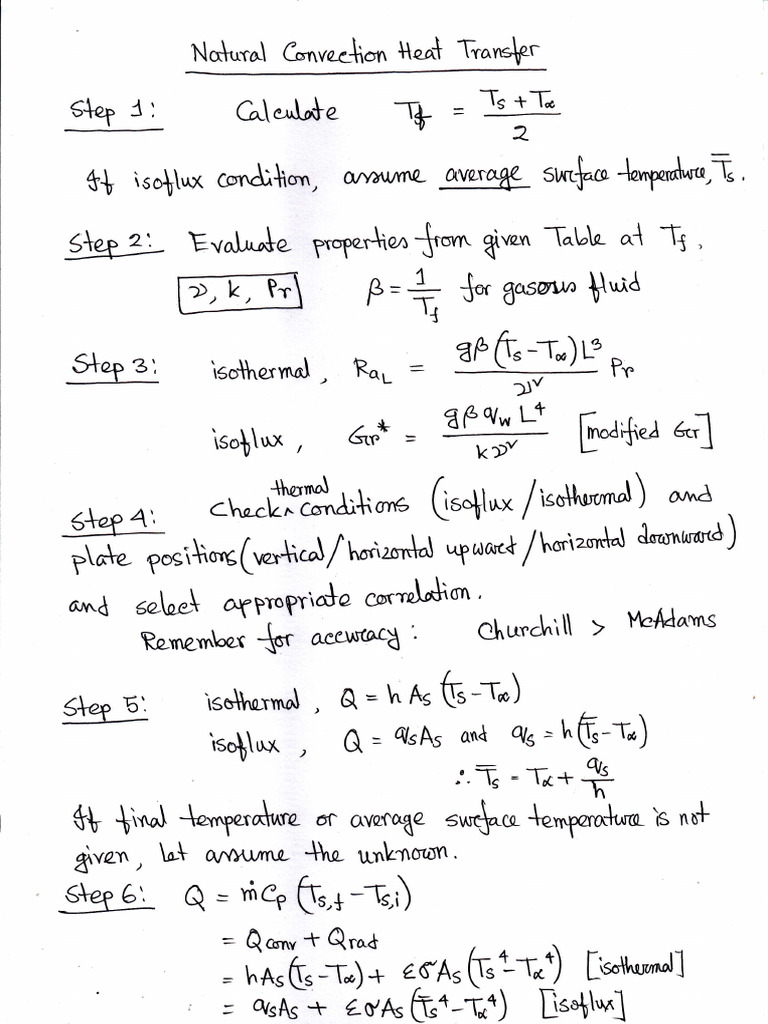 Natural Convection Heat Transfer
Step 1: Calculate T_f = (T_s + T_∝)/2
If isoflux condition, assume average surface temperature, T̅_s.
Step 2: Evaluate properties from given Table at T_f.
ν, k, Pr β = 1/T_f for gasous fluid
Step 3: isothermal, Ra_L = gβ(T_s - T_∝)L³/ν² Pr
isoflux, Gr* = gβq_wL⁴/kν² [modified Gr]
Step 4: Check thermal conditions (isoflux/isothermal) and
plate positions (vertical/horizontal upward/horizontal downward)
and select appropriate correlation.
Remember for accuracy: Churchill > McAdams
Step 5: isothermal, Q = h A_s (T_s - T_∝)
isoflux, Q = q_s A_s and q_s = h(T̅_s - T_∝)
∴ T̅_s = T_∝ + q_s/h
If final temperature or average surface temperature is not
given, let assume the unknown.
Step 6: Q = ṁC_p (T_s,f - T_s,i)
= Q_conv + Q_rad
= hA_s(T_s - T_∝) + εσA_s(T_s⁴ - T_∝⁴) [isothermal]
= q_sA_s + εσA_s(T̅_s⁴ - T_∝⁴) [isoflux]